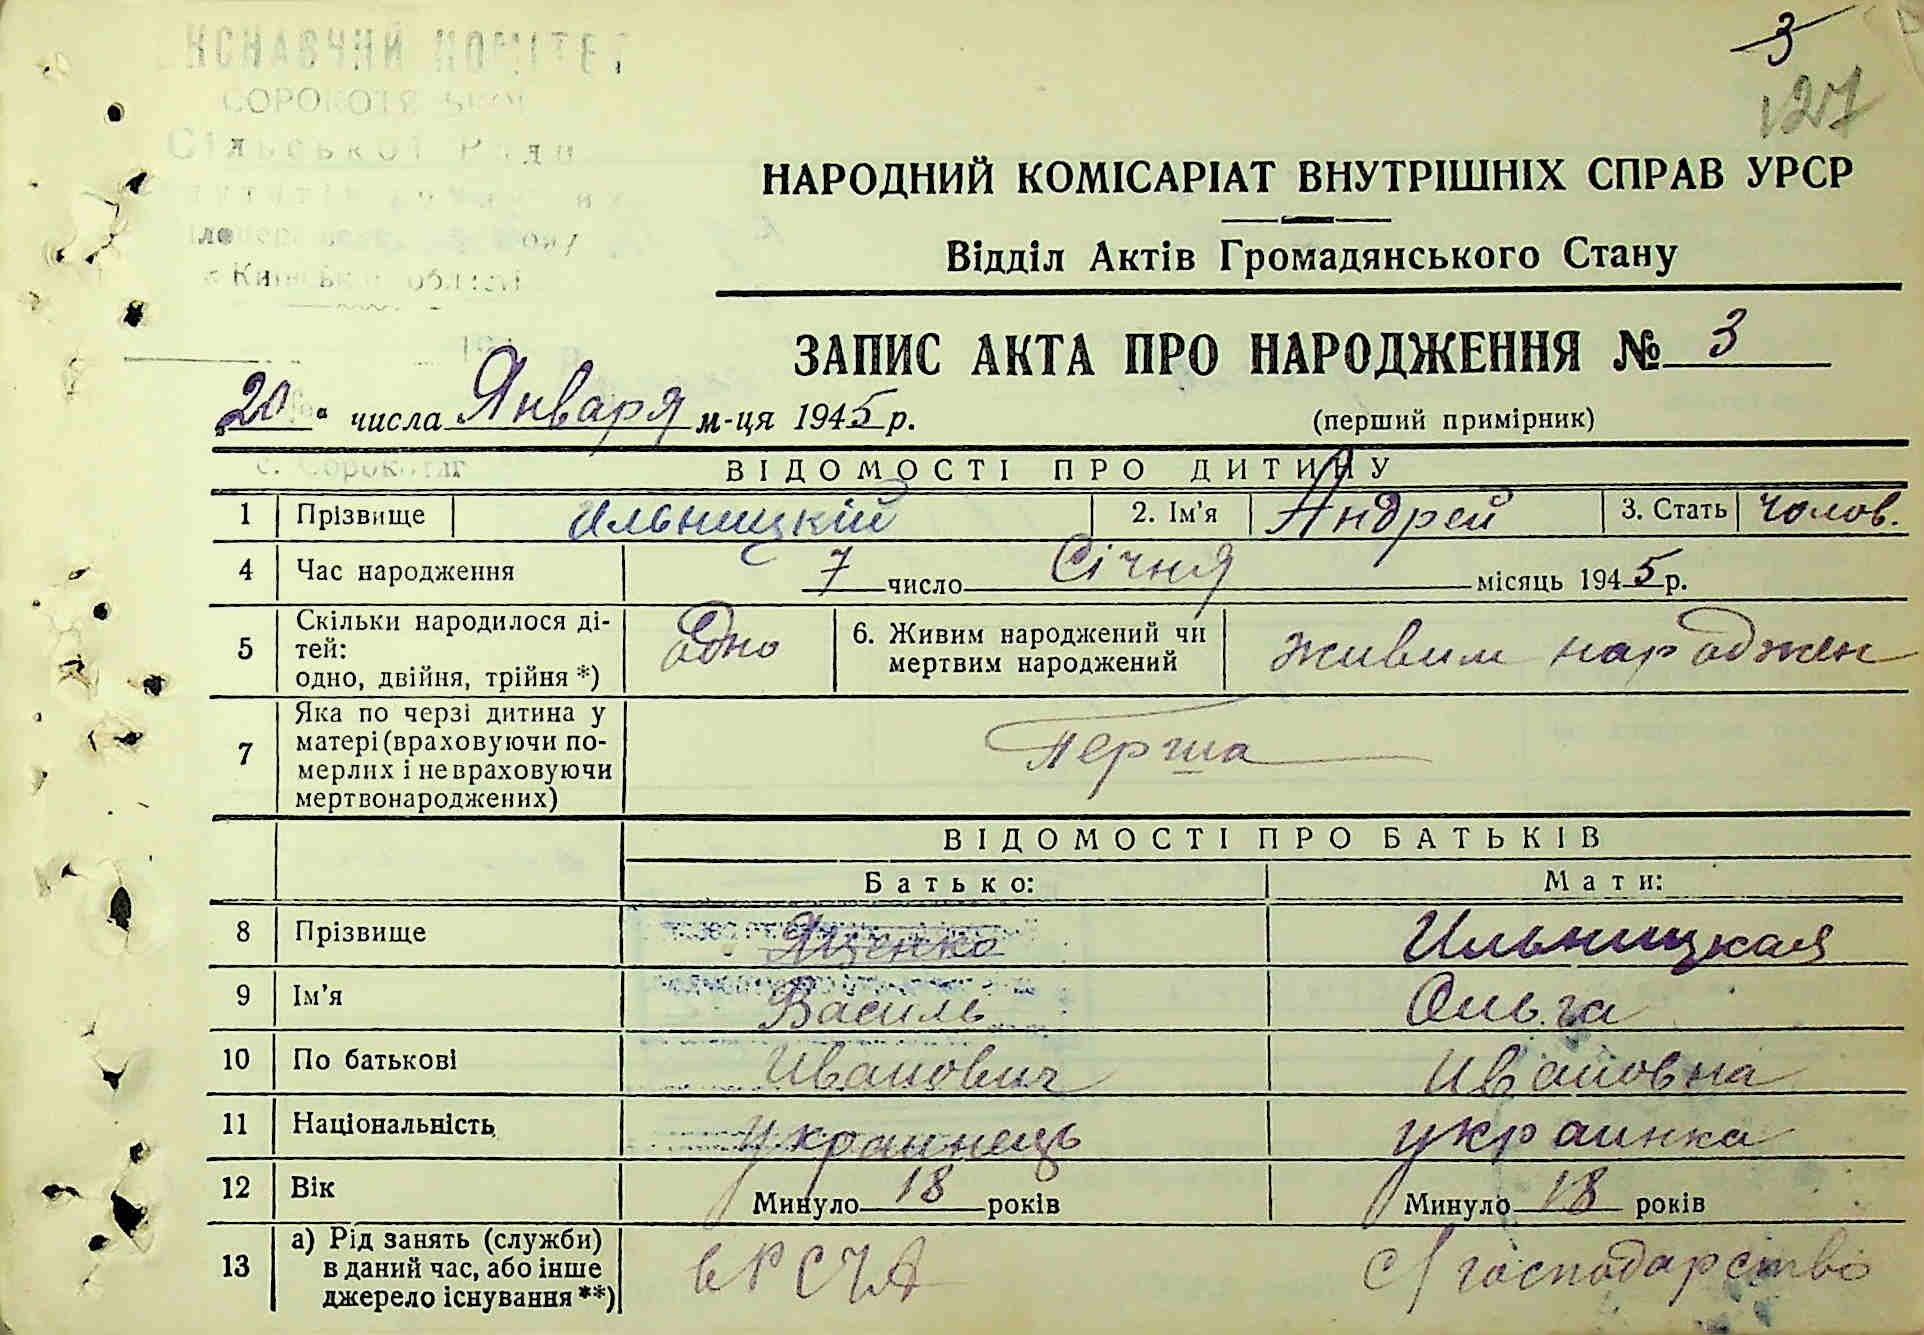 3
127
ВИКОНАВЧИЙ КОМІТЕТ
СОРОКОТЯ
Сільської Ради
Київської області
с. Сорокотяг
НАРОДНИЙ КОМІСАРІАТ ВНУТРІШНІХ СПРАВ УРСР
Відділ Актів Громадянського Стану
ЗАПИС АКТА ПРО НАРОДЖЕННЯ № 3
„20“ числа Января м-ця 1945 р.
(перший примірник)
ВІДОМОСТІ ПРО ДИТИНУ
1 Прізвище Ильницкій 2. Ім’я Андрей 3. Стать чолов.
4 Час народження 7 число Січня місяць 1945 р.
5 Скільки народилося ді-
тей:
одно, двійня, трійня *) Одно 6. Живим народжений чи
мертвим народжений живим народжен
7 Яка по черзі дитина у
матері (враховуючи по-
мерлих і не враховуючи
мертвонароджених) Перша
ВІДОМОСТІ ПРО БАТЬКІВ
Батько: Мати:
8 Прізвище Яценко Ильницкая
9 Ім’я Василь Ольга
10 По батькові Иванович Ивановна
11 Національність украинець украинка
12 Вік Минуло 18 років Минуло 18 років
13 а) Рід занять (служби)
в даний час, або інше
джерело існування **) в РСЧА с/господарстві